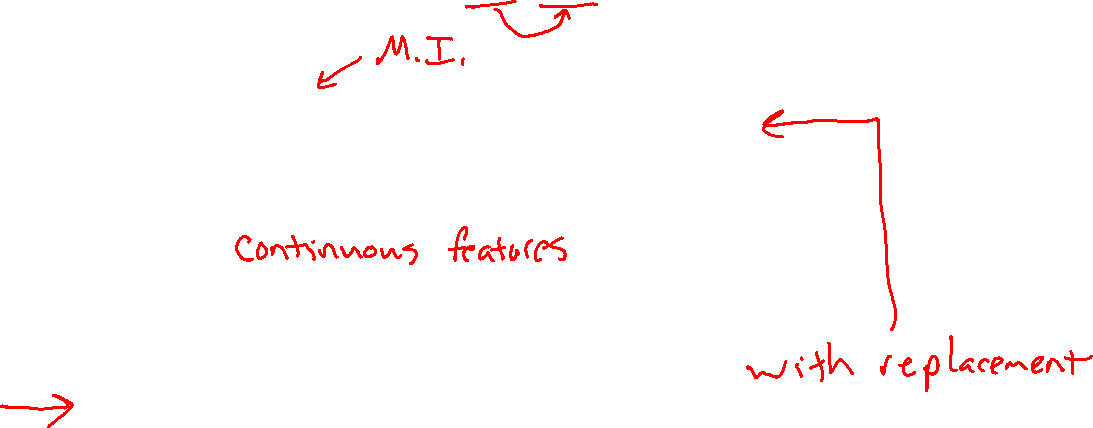 M.I.
continuous features
with replacement